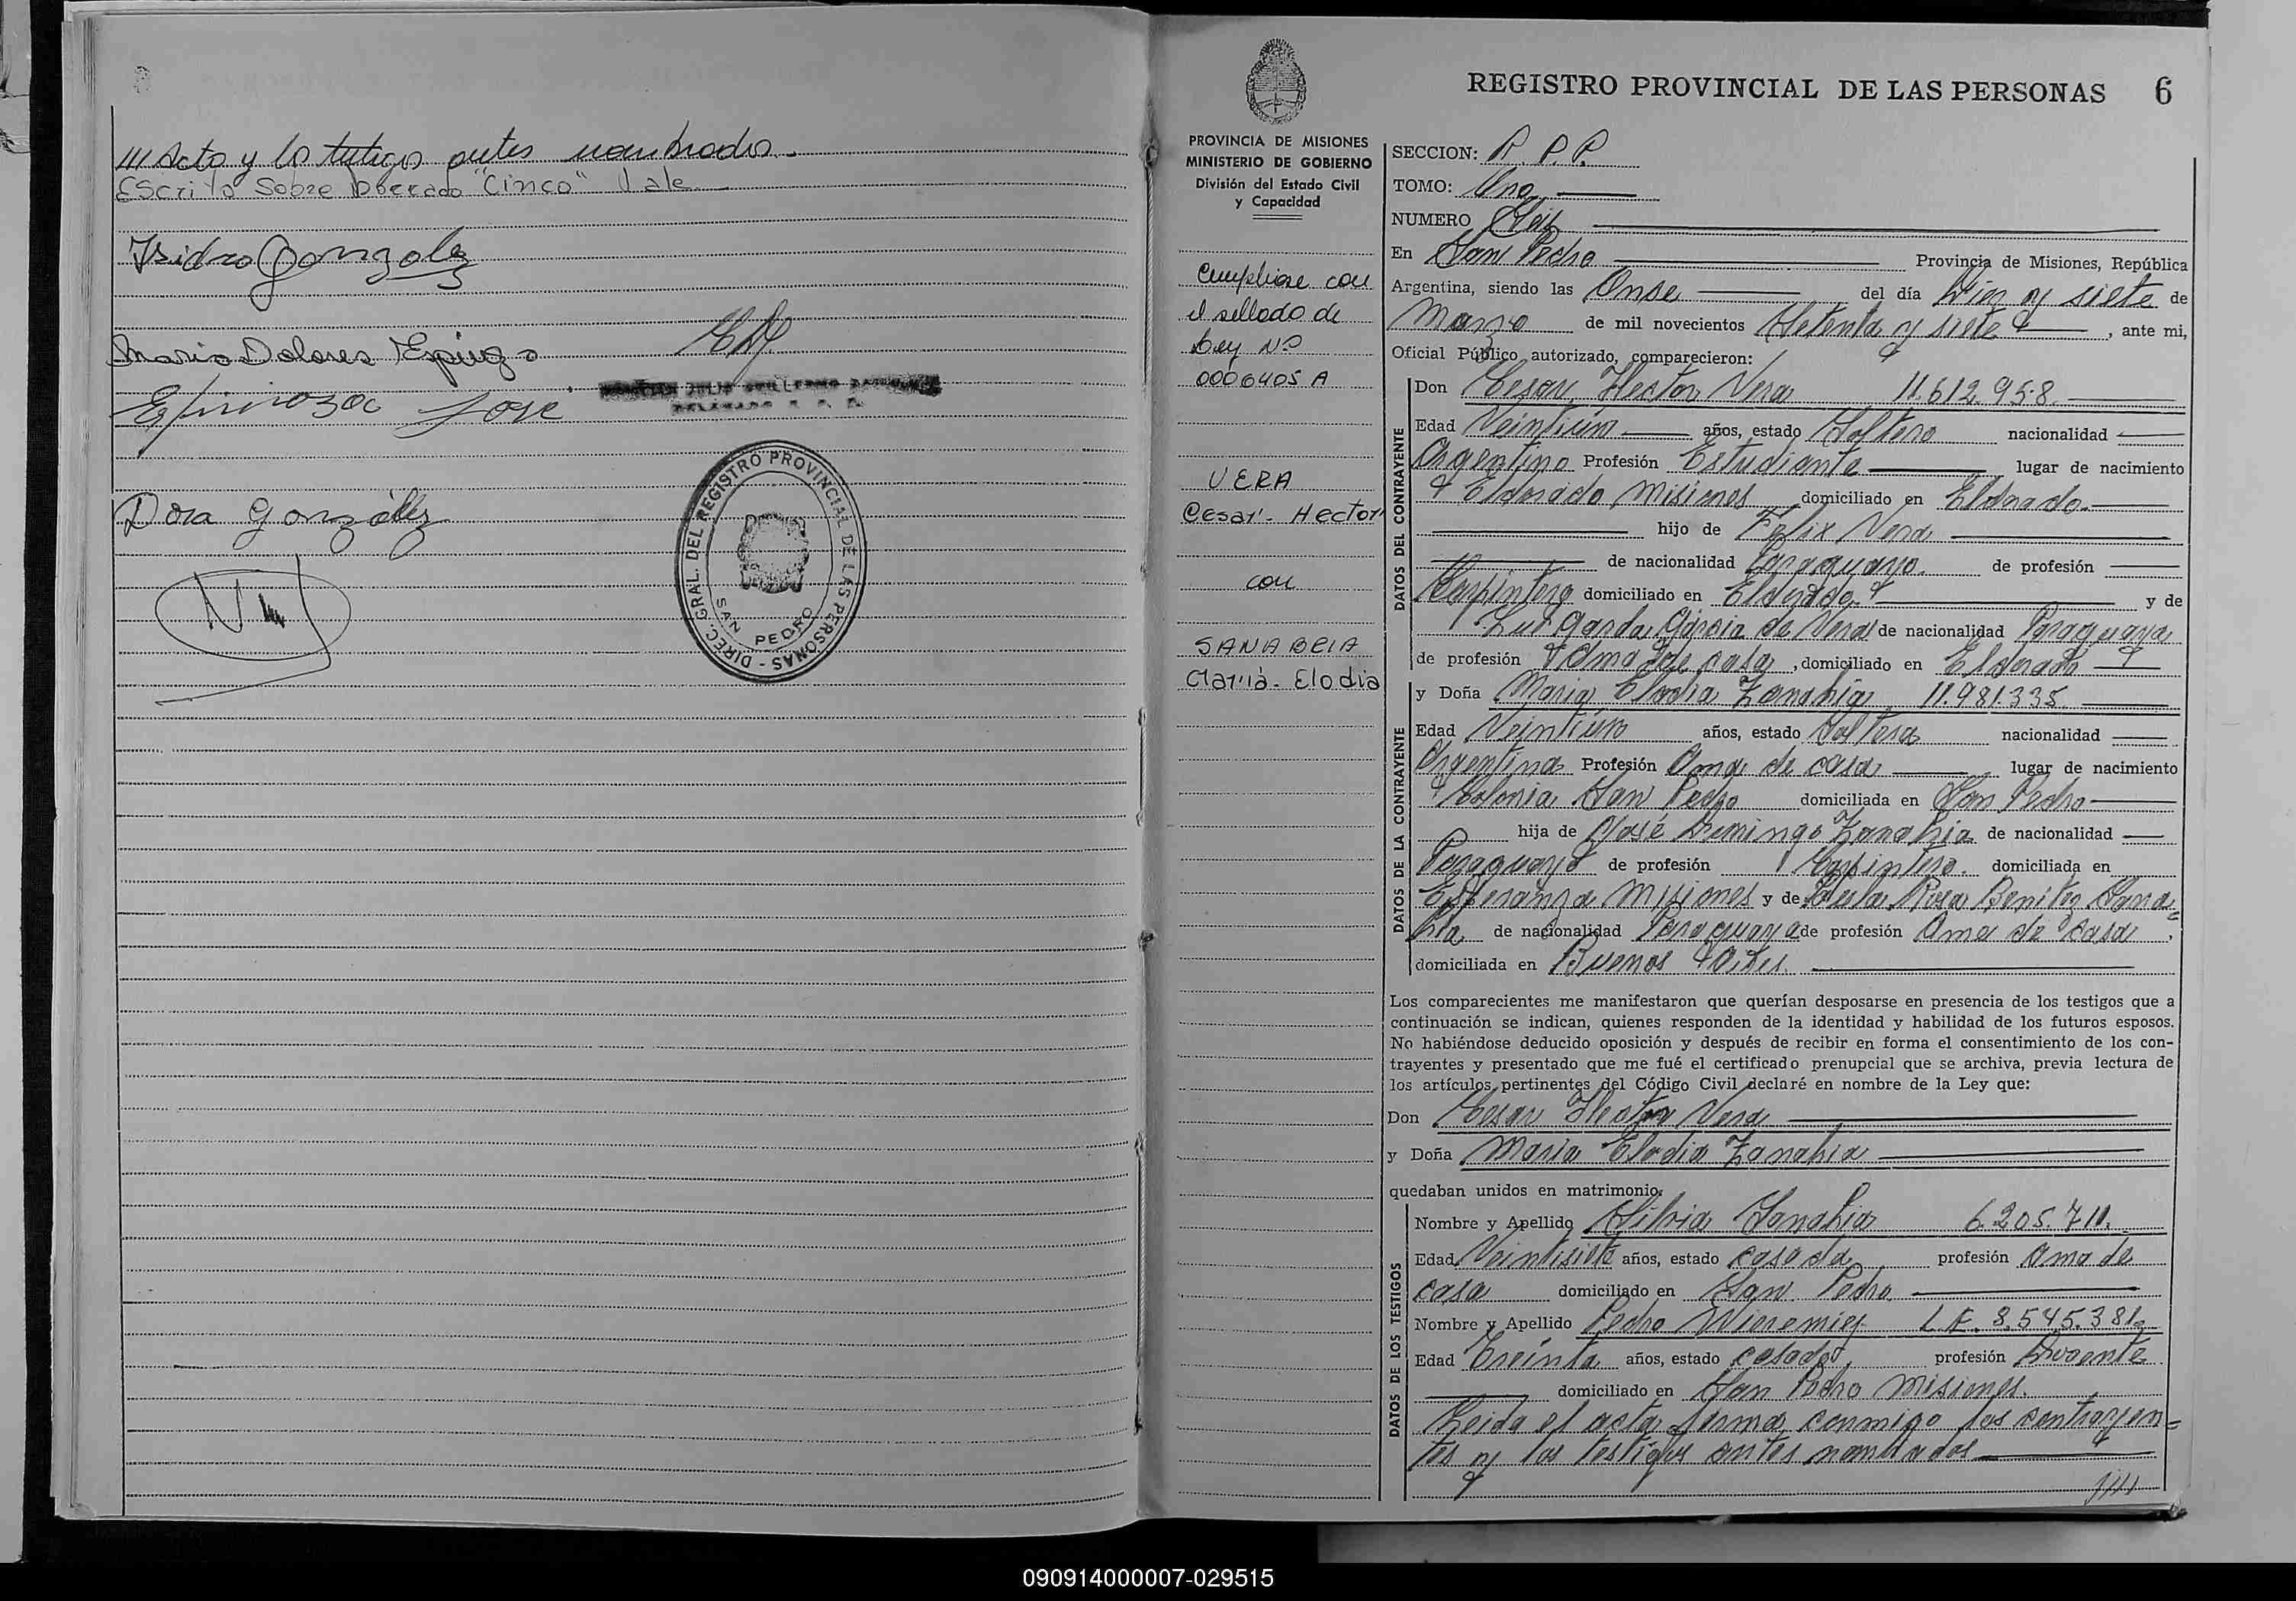 /// Acto y los testigos antes nombrados.-
Escrito Sobre Borrado "Cinco" Vale
Isidro Gonzalez
Maria Dolores Espinoza
Espinoza Jose
Dora González
DIREC. GRAL. DEL REGISTRO PROVINCIAL DE LAS PERSONAS -
SAN PEDRO
REGISTRO PROVINCIAL DE LAS PERSONAS 6
PROVINCIA DE MISIONES
MINISTERIO DE GOBIERNO
División del Estado Civil
y Capacidad
Cumpliose con
el sellado de
Ley Nº
0006405 A
VERA
Cesar - Hector
con
SANABRIA
Maria - Elodia
SECCION: R. P. P.
TOMO: Uno
NUMERO Seis
En San Pedro Provincia de Misiones, República
Argentina, siendo las Onse del día Diez y siete de
Marzo de mil novecientos Setenta y siete, ante mi,
Oficial Público autorizado, comparecieron:
DATOS DEL CONTRAYENTE
Don Cesar Hector Vera 11.612.958.
Edad Veintiún años, estado Soltero nacionalidad
Argentino Profesión Estudiante lugar de nacimiento
Eldorado Misiones domiciliado en Eldorado.
hijo de Felix Vera
de nacionalidad Paraguayo. de profesión
Carpintero domiciliado en Eldorado. y de
Lut Garda Garcia de Vera de nacionalidad Paraguaya
de profesión Ama de casa, domiciliado en Eldorado
DATOS DE LA CONTRAYENTE
y Doña Maria Elodia Zanabria 11.981.335.
Edad Veintiún años, estado Soltera nacionalidad
Argentina Profesión Ama de casa lugar de nacimiento
Colonia San Pedro domiciliada en San Pedro
hija de José Domingo Zanabria de nacionalidad
Paraguayo de profesión Carpintero. domiciliada en
Esperanza Misiones y de Rosa Benitez Sana=
bria de nacionalidad Paraguaya de profesión Ama de casa,
domiciliada en Buenos Aires.
Los comparecientes me manifestaron que querían desposarse en presencia de los testigos que a
continuación se indican, quienes responden de la identidad y habilidad de los futuros esposos.
No habiéndose deducido oposición y después de recibir en forma el consentimiento de los con-
trayentes y presentado que me fué el certificado prenupcial que se archiva, previa lectura de
los artículos pertinentes del Código Civil declaré en nombre de la Ley que:
Don Cesar Hector Vera
y Doña Maria Elodia Zanabria
quedaban unidos en matrimonio.
DATOS DE LOS TESTIGOS
Nombre y Apellido Silvia Sanabria 6.205.711.
Edad Veintisiete años, estado casada profesión ama de
casa domiciliado en San Pedro
Nombre y Apellido Pedro L.E. 8.545.381.
Edad Treinta años, estado casado, profesión Docente
domiciliado en San Pedro Misiones.
Leida el acta firma conmigo los contrayen=
tes y los testigos antes nombrados
////
090914000007-029515